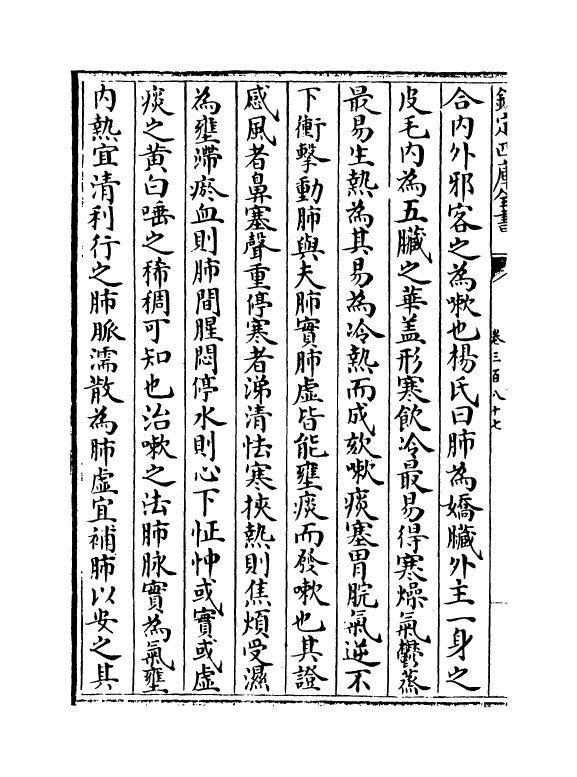 欽定四庫全書
卷三百八十七
合内外邪客之為嗽也楊氏曰肺為嬌臟外主一身之
皮毛内為五臟之華盖形寒飲冷最易得寒燥氣鬱蒸
最易生熱為其易為冷熱而成欬嗽痰塞胃脘氣逆不
下衝擊動肺與夫肺實肺虚皆能壅痰而發嗽也其證
感風者鼻塞聲重停寒者涕清怯寒挾熱則焦煩受濕
為壅滯瘀血則肺間腥悶停水則心下怔忡或實或虚
痰之黄白唾之稀稠可知也治嗽之法肺脉實為氣壅
内熱宜清利行之肺脈濡散為肺虚宜補肺以安之其